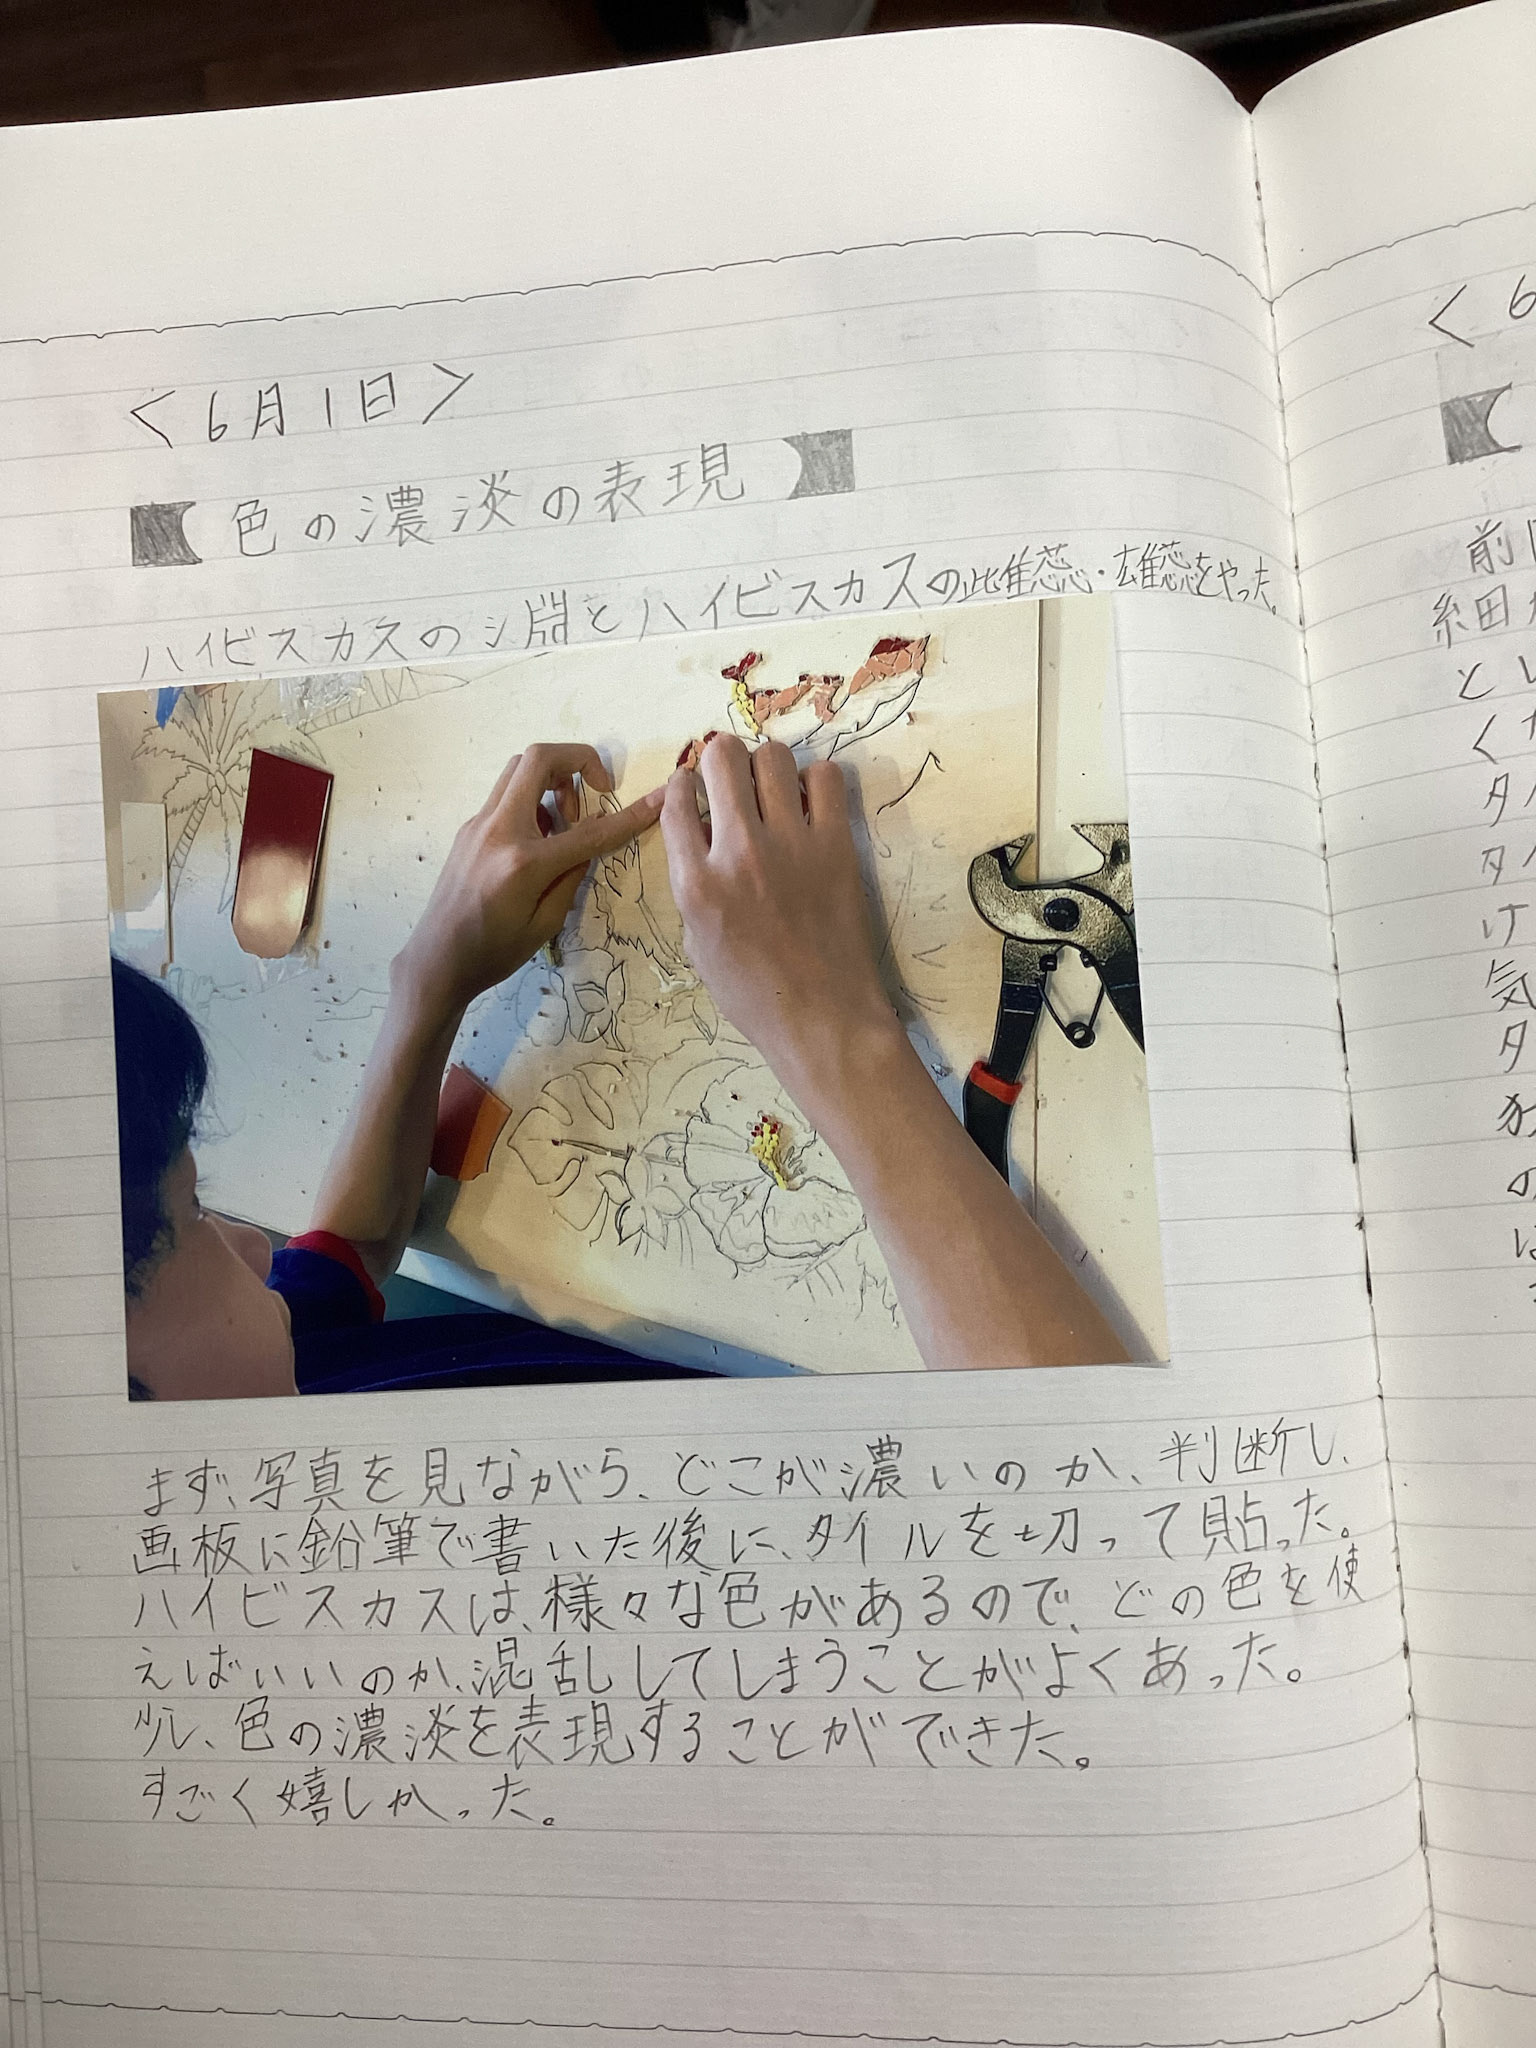 <6月1日>
色の濃淡の表現
ハイビスカスの淵とハイビスカスの雌蕊・雄蕊をやった。
まず、写真を見ながら、どこが濃いのか、判断し、
画板に鉛筆で書いた後に、タイルを切って貼った。
ハイビスカスは、様々な色があるので、どの色を使
えばいいのか、混乱してしまうことがよくあった。
少し、色の濃淡を表現することができた。
すごく嬉しかった。
<6
前
細
とし
く
タ
タイ
け
気
タ
の